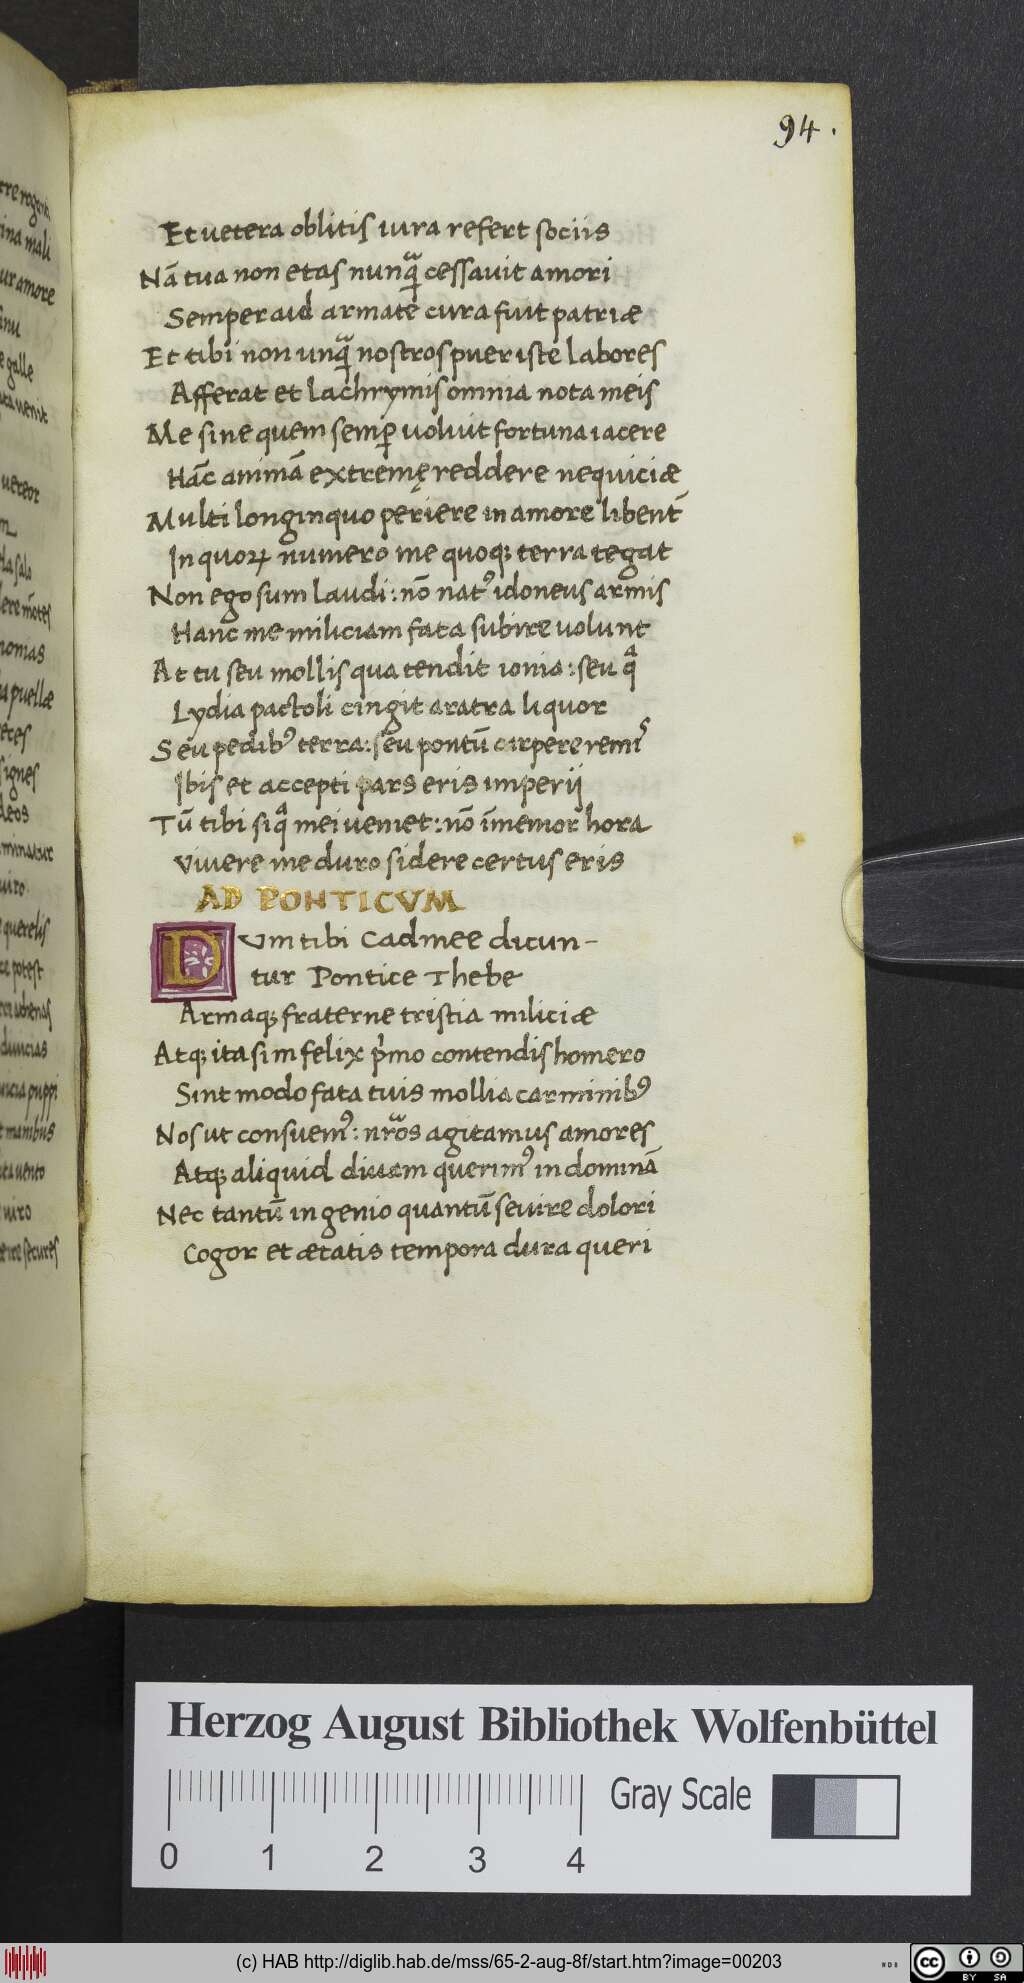 94.
Et vetera oblitis iura refert sociis
Nā tua non etas nunqᷓ cessauit amori
Semper aud armate cura fuit patriæ
Et tibi non unqᷓ nostros puer iste labores
Afferat et lachrymis omnia nota meis
Me sine quem semꝑ uoluit fortuna iacere
Hāc animā extremę reddere nequiciæ
Multi longinquo periere in amore libenť
In quoꝝ numero me quoqꝫ terra tegat
Non ego sum laudi: nō natꝰ idoneus armis
Hanc me miliciam fata subire uolunt
At tu seu mollis qua tendit ionia: seu qᷓ
Lydia pactoli cingit aratra liquor
Seu pedibꝰ terra: seu pontū carpere remiˢ
Ibis et accepti pars eris imperij
Tū tibi siqᷓ mei ueniet: nō īmemor hora
Viuere me duro sidere certus eris
AD PONTICVM
Dvm tibi Cadmee dicun-
tur Pontice Thebe
Armaqꝫ fraterne tristia miliciæ
Atqꝫ ita sim felix pͥmo contendis homero
Sint modo fata tuis mollia carminibꝰ
Nos ut consuemꝰ: nr̄os agitamus amores
Atqꝫ aliquid duram querimꝰ in dominā
Nec tantū ingenio quantū seuire dolori
Cogor et ætatis tempora dura queri
mali
amore
galle
uereor
monias
puellæ
signes
deos
uiro
querelis
potest
puppi
manibus
uento
uiro
secures
Herzog August Bibliothek Wolfenbüttel
Gray Scale
0 1 2 3 4
(c) HAB http://diglib.hab.de/mss/65-2-aug-8f/start.htm?image=00203
cc BY SA